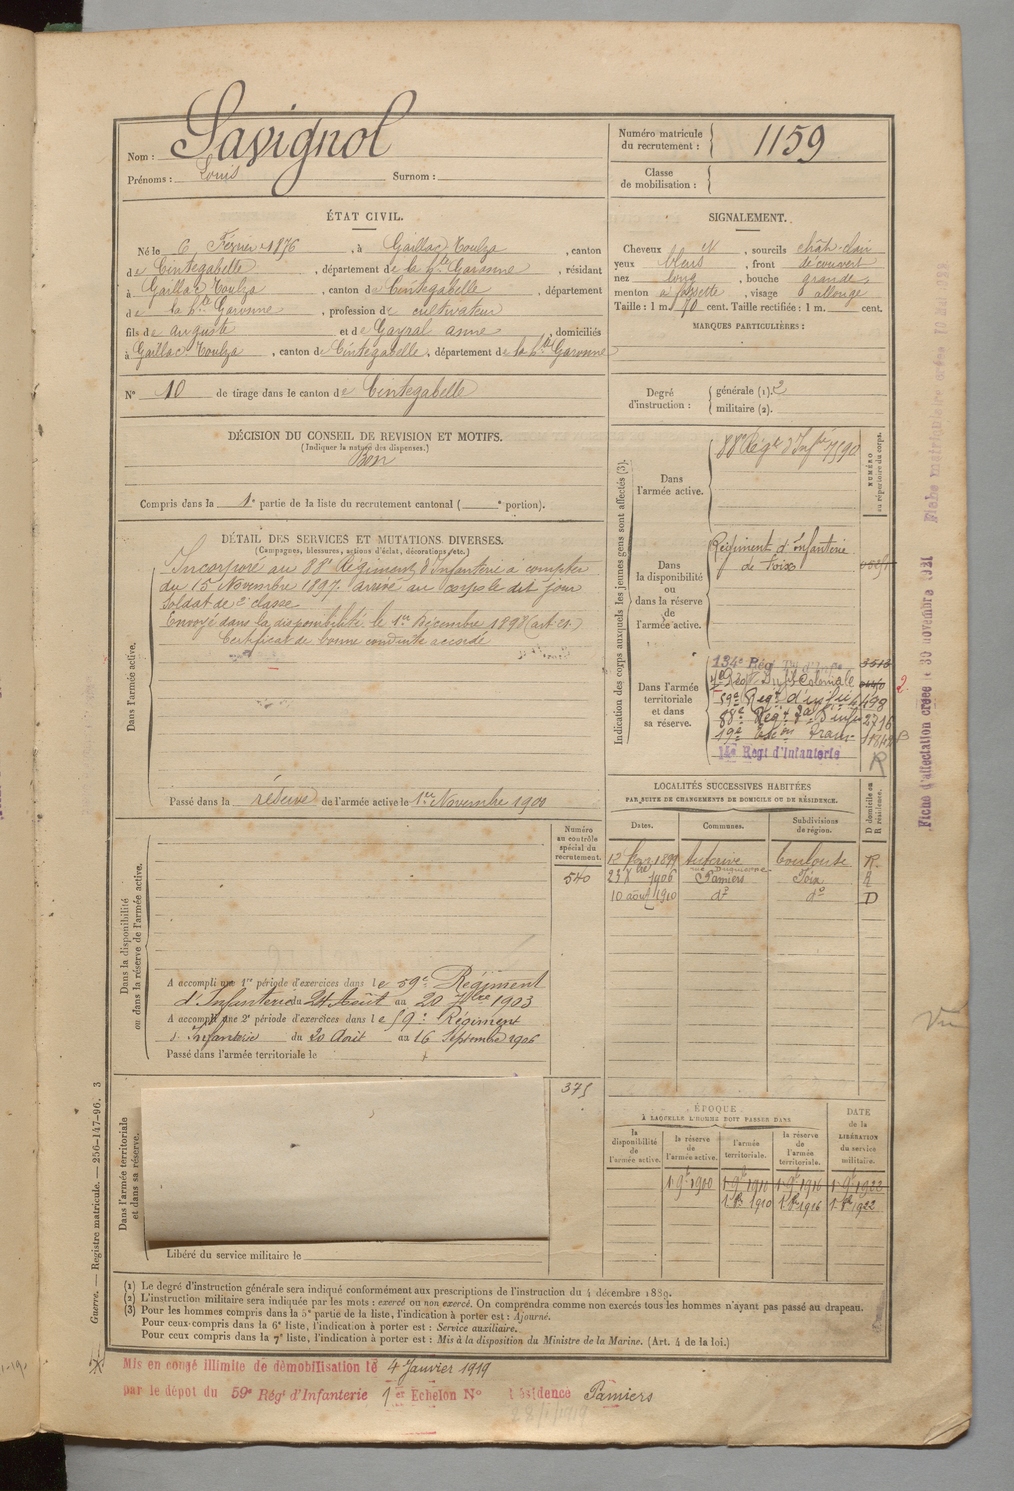 Nom : Savignol
Prénoms : Louis Surnom :
Numéro matricule du recrutement : 1159
Classe de mobilisation :
ÉTAT CIVIL.
Né le 6 Février 1876, à Gaillac Toulza, canton
de Cintegabelle, département de la Hte Garonne, résidant
à Gaillac Toulza, canton de Cintegabelle, département
de la Hte Garonne, profession de cultivateur
fils de auguste et de Gayral anne, domiciliés
à Gaillac Toulza, canton de Cintegabelle, département de la Hte Garonne
N° 10 de tirage dans le canton de Cintegabelle
SIGNALEMENT.
Cheveux , sourcils chât-clair
yeux bleus, front découvert
nez long, bouche grande
menton à fossette, visage allongé
Taille : 1 m. 70 cent. Taille rectifiée : 1 m. cent.
MARQUES PARTICULIÈRES :
Degré d'instruction : générale (1). 2
militaire (2).
DÉCISION DU CONSEIL DE REVISION ET MOTIFS.
(Indiquer la nature des dispenses.)
Bon
Compris dans la 1e partie de la liste du recrutement cantonal ( e portion).
DÉTAIL DES SERVICES ET MUTATIONS DIVERSES.
(Campagnes, blessures, actions d'éclat, décorations, etc.)
Dans l'armée active.
Incorporé au 88e Régiment d'Infanterie à compter
du 15 Novembre 1897. arrivé au corps le dit jour
Soldat de 2e classe
Envoyé dans la disponibilité le 1er Décembre 1898 (art. 21.)
Certificat de bonne conduite accordé
Passé dans la réserve de l'armée active le 1er Novembre 1900
Indication des corps auxquels les jeunes gens sont affectés (3).
NUMÉRO au répertoire du corps.
Dans l'armée active.
88e Régt d'Infrie 7590
Dans la disponibilité ou dans la réserve de l'armée active.
Régiment d'infanterie
de Foix
Dans l'armée territoriale et dans sa réserve.
134e Régt Tal d'Infie
59e Regt d'infie 498
88e Régt d'Infie 2716
19e Eson Train
14e Régt d'Infanterie
R
LOCALITÉS SUCCESSIVES HABITÉES
PAR SUITE DE CHANGEMENTS DE DOMICILE OU DE RÉSIDENCE.
Dates. Communes. Subdivisions de région. D domicile ou R résidence.
1899 Auterive Toulouse R.
23 Xbre 1906 Pamiers Foix R
10 août 1910 do do D
Dans la disponibilité ou dans la réserve de l'armée active.
Numéro au contrôle spécial du recrutement.
540
A accompli une 1re période d'exercices dans le 59e Régiment
d'Infanterie du 24 Août au 20 7bre 1903
A accompli une 2e période d'exercices dans le 59e Régiment
d'Infanterie du 20 Août au 16 Septembre 1906
Passé dans l'armée territoriale le
Dans l'armée territoriale et dans sa réserve.
375
Libéré du service militaire le
ÉPOQUE
À LAQUELLE L'HOMME DOIT PASSER DANS
la disponibilité de l'armée active.
la réserve de l'armée active.
l'armée territoriale.
la réserve de l'armée territoriale.
DATE de la LIBÉRATION du service militaire.
1 9bre 1900 1 9bre 1910 1 9bre 1916 1 9bre 1922
1910 1916 1922
(1) Le degré d'instruction générale sera indiqué conformément aux prescriptions de l'instruction du 4 décembre 1889.
(2) L'instruction militaire sera indiquée par les mots : exercé ou non exercé. On comprendra comme non exercés tous les hommes n'ayant pas passé au drapeau.
(3) Pour les hommes compris dans la 5e partie de la liste, l'indication à porter est : Ajourné.
Pour ceux compris dans la 6e liste, l'indication à porter est : Service auxiliaire.
Pour ceux compris dans la 7e liste, l'indication à porter est : Mis à la disposition du Ministre de la Marine. (Art. 4 de la loi.)
Mis en congé illimité de démobilisation le 4 Janvier 1919
par le dépôt du 59e Régt d'Infanterie 1er Echelon N° résidence Pamiers
28/1/1919
Guerre. — Registre matricule. — 256-147-96. 3
Fiche d'affectation créée le 30 novembre 1921
Fiche matriculaire créée 10 Mai 1928
Vu